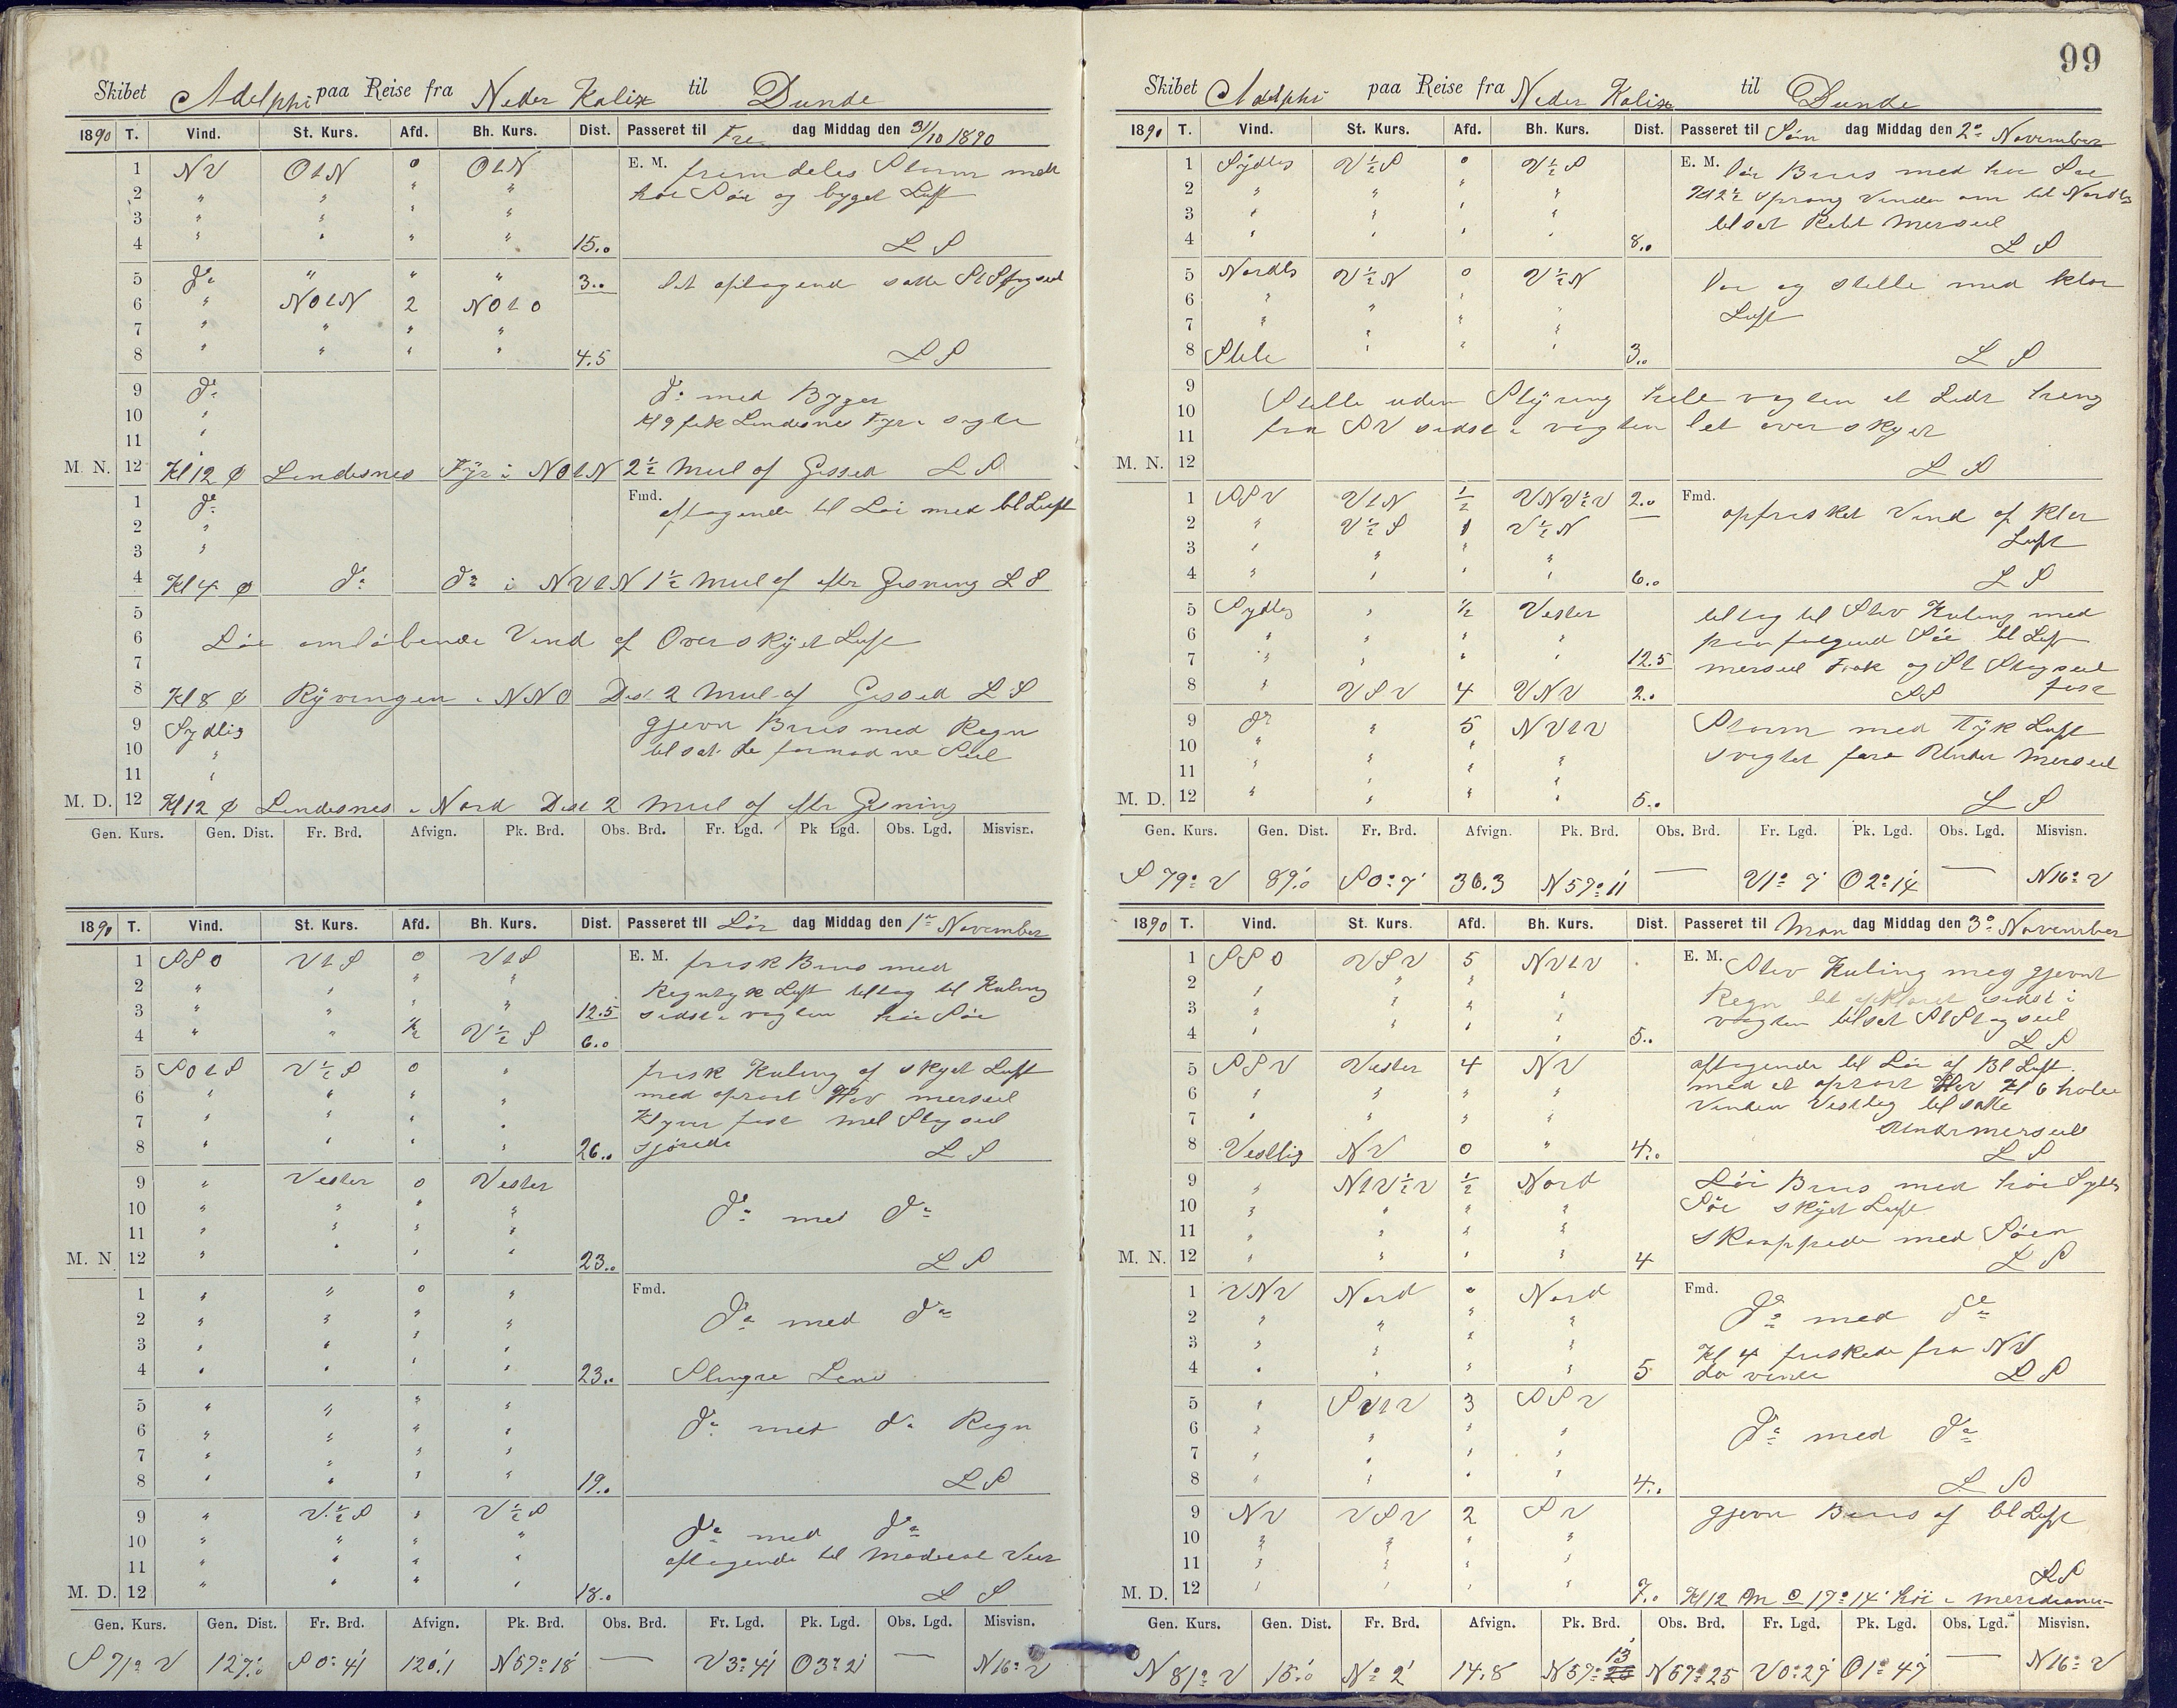 Skibet Adelphi paa Reise fra Neder Kalix til Dunde
1890 T. Vind. St. Kurs. Afd. Bh. Kurs. Dist. Passeret til Fre dag Middag den 31/10 1890
1 NV OtN 0 OtN E. M. fremdeles Storm med
2 " " " " høi Söe og byget Luft
3 " " " "
4 " " " " 15.0 L S
5 do " " " 3.0 lidt aftagende satte St Stagseil
6 " NOtN 2 NOtO
7 " " " "
8 " " " " 4.5 L S
9 do do med Byger
10 " Kl 9 fik Lindesnes Fyr i sigte
11 "
M. N. 12 Kl 12 ø Lindesnes Fyr i NOtN 2½ Miil af Gisset L S
1 do Fmd. aftagende til Löi med bl Luft
2 "
3 "
4 Kl 4 ø do do i NVtN 1½ Miil af efter Gisning L S
5
6 Löi omlöbende Vind af Overskyet Luft
7
8 Kl 8 ø Ryvingen i NNO Dist 2 Miil af Gisset L S
9 Sydlig gjevn Bris med Regn
10 " tilsat de formodne Seil
11 "
M. D. 12 Kl 12 ø Lindesnes i Nord Dist 2 Miil af eftr Gisning
Gen. Kurs. Gen. Dist. Fr. Brd. Afvign. Pk. Brd. Obs. Brd. Fr. Lgd. Pk Lgd. Obs. Lgd. Misvisn.
1890 T. Vind. St. Kurs. Afd. Bh. Kurs. Dist. Passeret til Lör dag Middag den 1ste November
1 SSO VtS 0 VtS E. M. frisk Bris med
2 " " " " Regntyk Luft tiltog til Kuling
3 " " " " 12.5 sidst i vagten höi Söe
4 " " ½ V½S 6.0
5 SOtS V½S 0 " frisk Kuling af skyet Luft
6 " " " " med oprört Hav merseil
7 " " " " Klyver fast mel Stagseil
8 " " " " 26.0 sjörede L S
9 " Vester 0 Vester
10 " " " " do med do
11 " " " "
M. N 12 " " " " 23.0 L S
1 " " 0 " Fmd.
2 " " " " do med do
3 " " " "
4 " " " " 23.0 Slingre Lens
5 " " " "
6 " " " " do med do Regn
7 " " " "
8 " " " " 19.0 L S
9 " V½S " V½S
10 " " " " do med do
11 " " " " aftagende til Moderat Veir
M. D. 12 " " " " 18.0 L S
Gen. Kurs. Gen. Dist. Fr. Brd. Afvign. Pk. Brd. Obs. Brd. Fr. Lgd. Pk. Lgd. Obs. Lgd. Misvisn.
S 71° V 127.0 S 0° 41' 120.1 N 57° 18' — V 3° 41' O 3° 21' — N 16° V
99
Skibet Adelphi paa Reise fra Neder Kalix til Dunde
1890 T. Vind. St. Kurs. Afd. Bh. Kurs. Dist. Passeret til Sön dag Middag den 2den November
1 Sydlig V½S 0 V½S E. M. löi Bris med höi Söe
2 " " " " Kl 2½ sprang Vinden om til Nordlig
3 " " " " tilsat Rebt Merseil
4 " " " " 8.0 L S
5 Nordlg V½N 0 V½N löi og stille med klar
6 " " " " Luft
7 " " " "
8 Stile " " " 3.0 L S
9 Stille uden Styring hele vagten et Lidt træng
10 fra SV sidst i vagten let overskyet
11
M. N. 12 L S
1 SSV VtN ½ VNV½V 2.0 Fmd. opfrisket Vind af klar
2 " V½S 1 V½N Luft
3 " " " "
4 " " " " 6.0 L S
5 Sydlig " ½ Vester tiltog til Stiv Kuling med
6 " " " " paafolgend Söe bl Luft
7 " " " " 12.5 merseil Fok og St Stagseil
8 " VSV 4 VNV 2.0 LS fast
9 do " 5 NVtV Storm med Tyk Luft
10 " " " " svigtet fore Under Merseil
11 " " " "
M. D. 12 " " " " 5.0 L S
Gen. Kurs. Gen. Dist. Fr. Brd. Afvign. Pk. Brd. Obs. Brd. Fr. Lgd. Pk. Lgd. Obs. Lgd. Misvisn.
S 79° V 89.0 S 0° 7' 36.3 N 57° 11' — V 1° 7' O 2° 14' — N 16° V
1890 T. Vind. St. Kurs. Afd. Bh. Kurs. Dist. Passeret til Man dag Middag den 3die November
1 SSO VSV 5 NVtV E. M. Stiv Kuling meg gjevnt
2 " " " " Regn lit opklaret sidst i
3 " " " " vagten tilsat St Stagseil
4 " " " " 5.0 L S
5 SSV Vester 4 NV aftagende til Löi af Bl Luft
6 " " " " med et oprört Hav Kl 6 holte
7 " " " " Vinden Vestlig tilsatte
8 Vestlig NV 0 " 4.0 Undrmerseil L S
9 " NtV½V ½ Nord Löi Bris med höi Sydlg
10 " " " " Söe skyet Luft
11 " " " " skaappede med Söen
M. N. 12 " " " " 4 L S
1 VNV Nord 0 Nord Fmd.
2 " " " " do med do
3 " " " " Kl 4 friskede fra NV
4 " " " " 5 da vendt L S
5 " SVtV 3 SSV
6 " " " " do med do
7 " " " "
8 " " " " 4.0 L S
9 NV VSV 2 SV gjevn Bris af bl Luft
10 " " " "
11 " " " " L S
M. D. 12 " " " " 7.0 Kl 12 Om ⊙ 17° 14' höi i meridianen
Gen. Kurs. Gen. Dist. Fr. Brd. Afvign. Pk. Brd. Obs. Brd. Fr. Lgd. Pk. Lgd. Obs. Lgd. Misvisn.
N 81° V 15.0 N ° 2' 14.8 N 57° 13' N 57° 25 V 0° 27' O 1° 47' — N 16° V